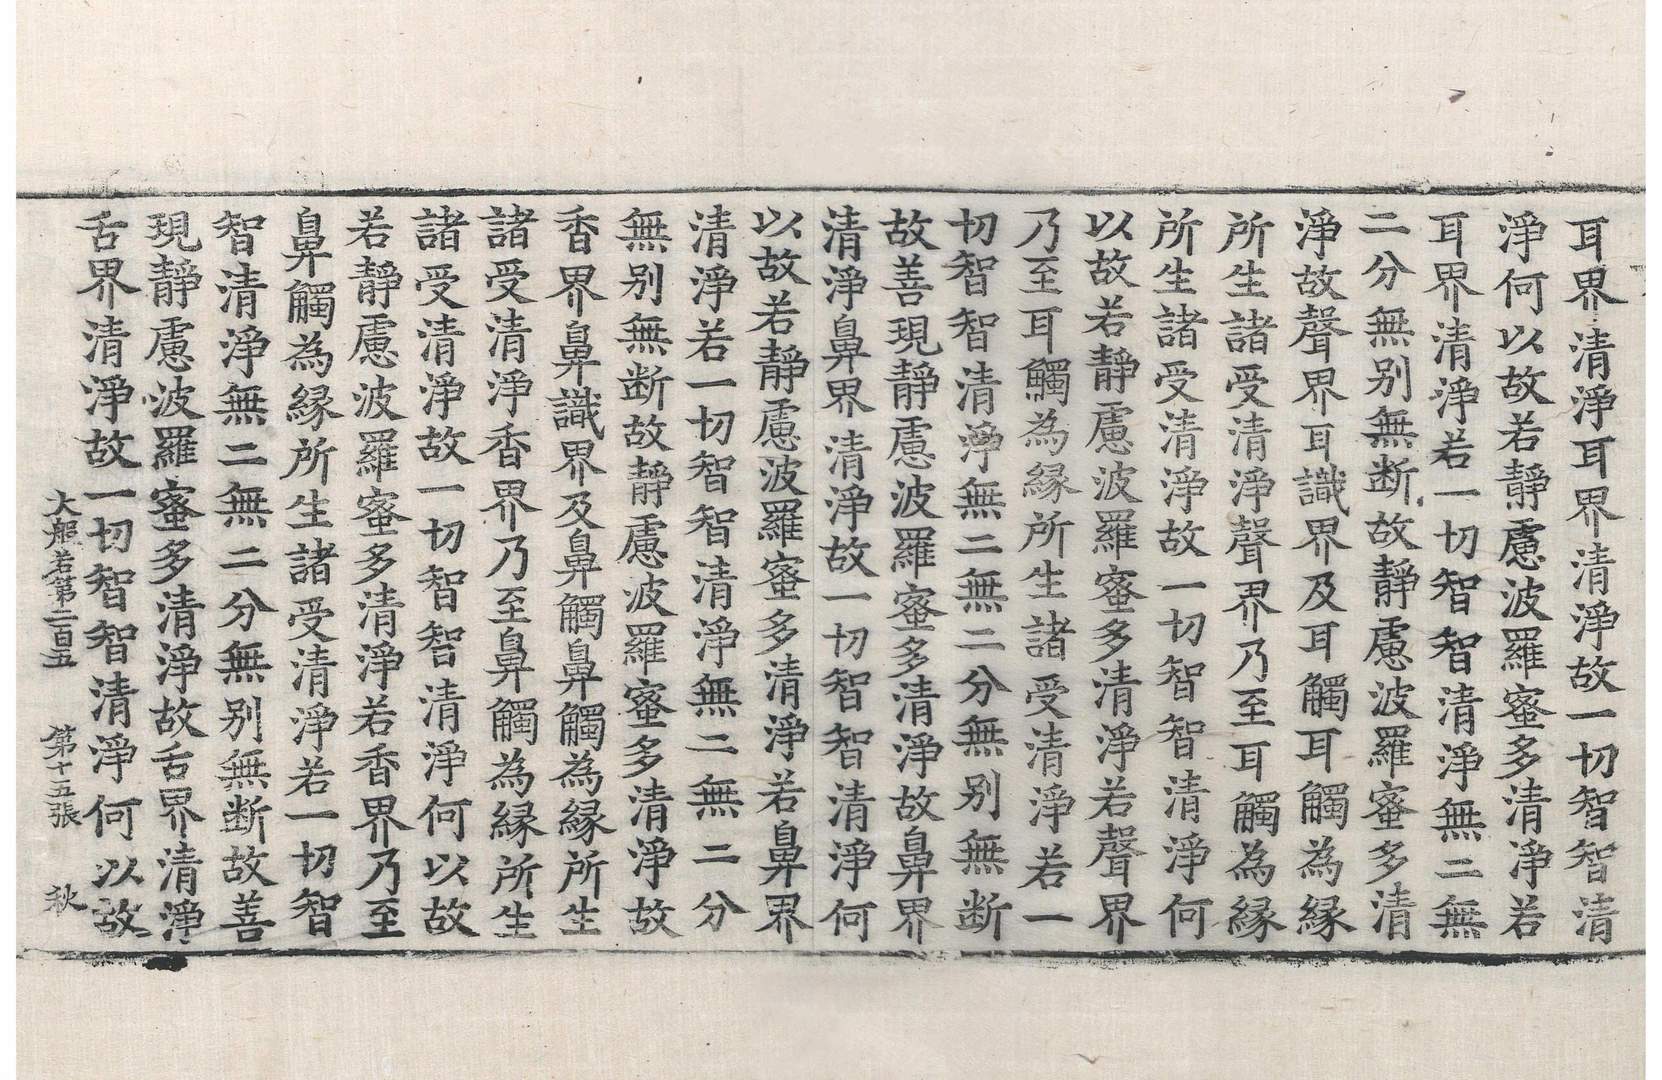 耳界清淨耳界清淨故一切智智清
淨何以故若靜慮波羅蜜多清淨若
耳界清淨若一切智智清淨無二無
二分無别無断故靜慮波羅蜜多清
淨故聲界耳識界及耳觸耳觸為縁
所生諸受清淨聲界乃至耳觸為縁
所生諸受清淨故一切智智清淨何
以故若靜慮波羅蜜多清淨若聲界
乃至耳觸為縁所生諸受清淨若一
切智智清淨無二無二分無别無断
故善現靜慮波羅蜜多清淨故鼻界
清淨鼻界清淨故一切智智清淨何
以故若靜慮波羅蜜多清淨若鼻界
清淨若一切智智清淨無二無二分
無别無断故靜慮波羅蜜多清淨故
香界鼻識界及鼻觸鼻觸為縁所生
諸受清淨香界乃至鼻觸為縁所生
諸受清淨故一切智智清淨何以故
若靜慮波羅蜜多清淨若香界乃至
鼻觸為縁所生諸受清淨若一切智
智清淨無二無二分無别無断故善
現靜慮波羅蜜多清淨故舌界清淨
舌界清淨故一切智智清淨何以故
大般若第二百五 第十五張 秋